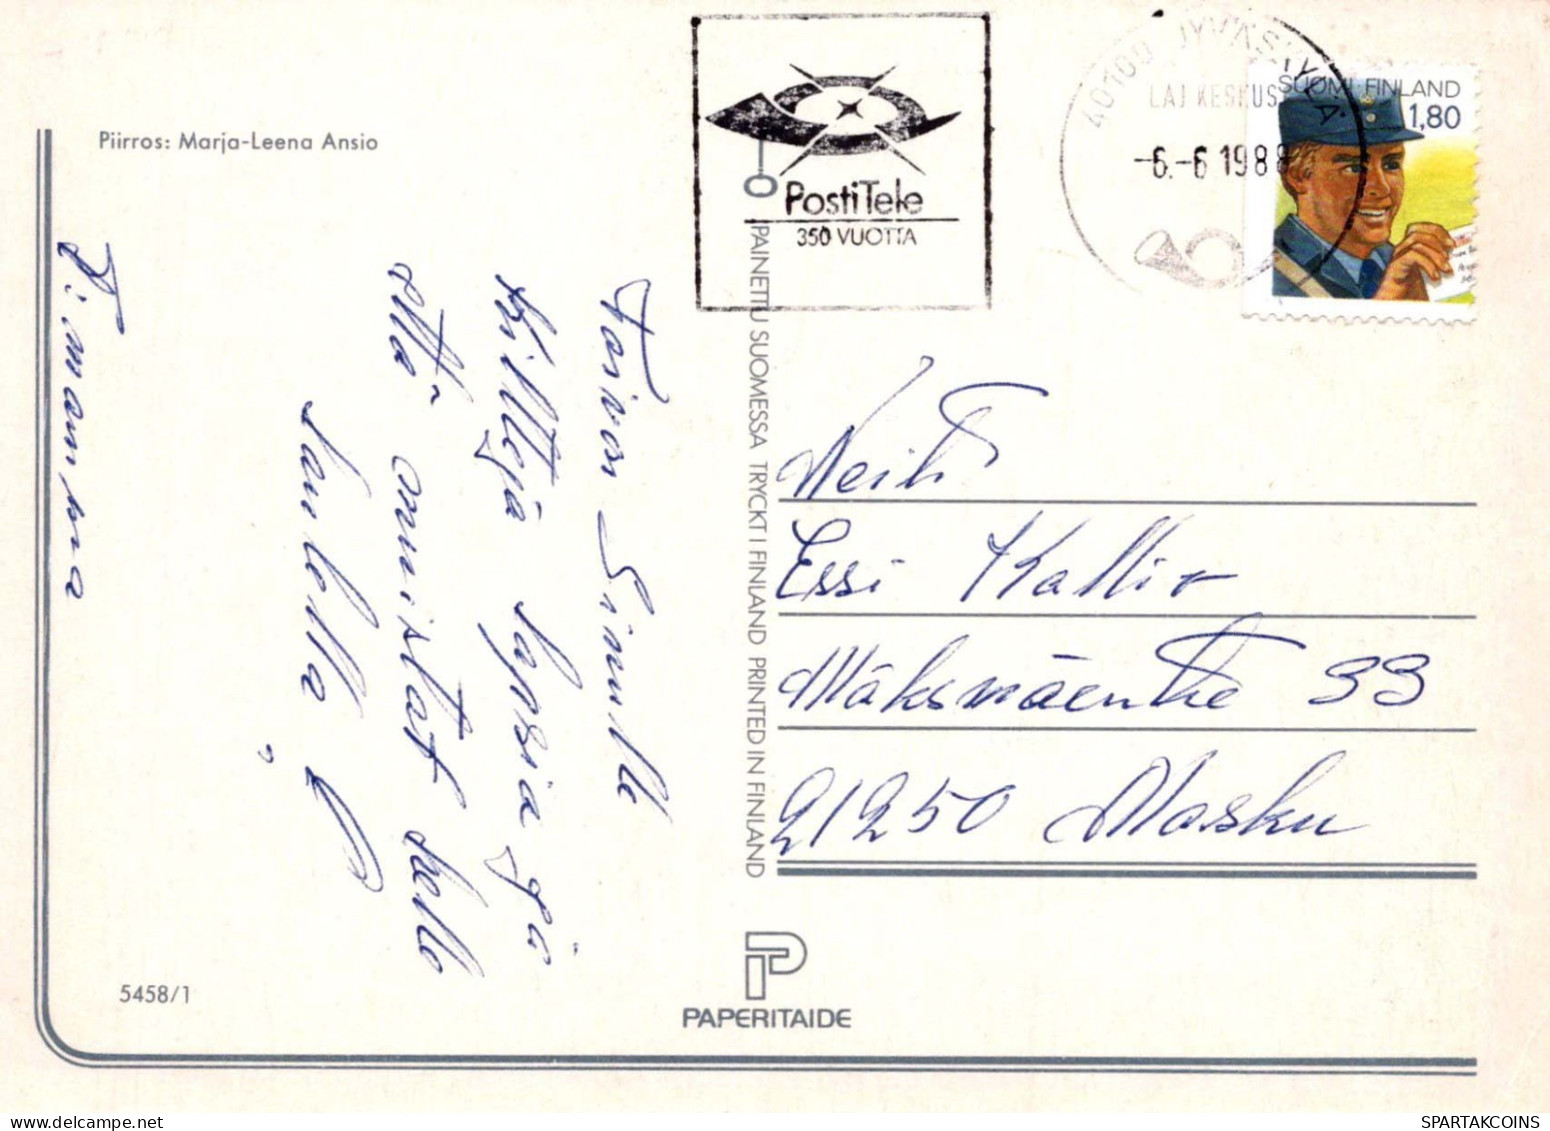 Piirros: Marja-Leena Ansio
PostiTele
350 VUOTTA
40100 JYVÄSKYLÄ
LAJ KESKUS
-6.-6 1988
SUOMI FINLAND
1,80
Toivon Sinulle
kilttejä lapsia ja
että muistat kello
laulella
Neiti
Essi Kallio
Mäksmäentie 33
21250 Masku
PAINETTU SUOMESSA TRYCKT I FINLAND PRINTED IN FINLAND
5458/1
PAPERITAIDE
SPARTAKCOINS.COM